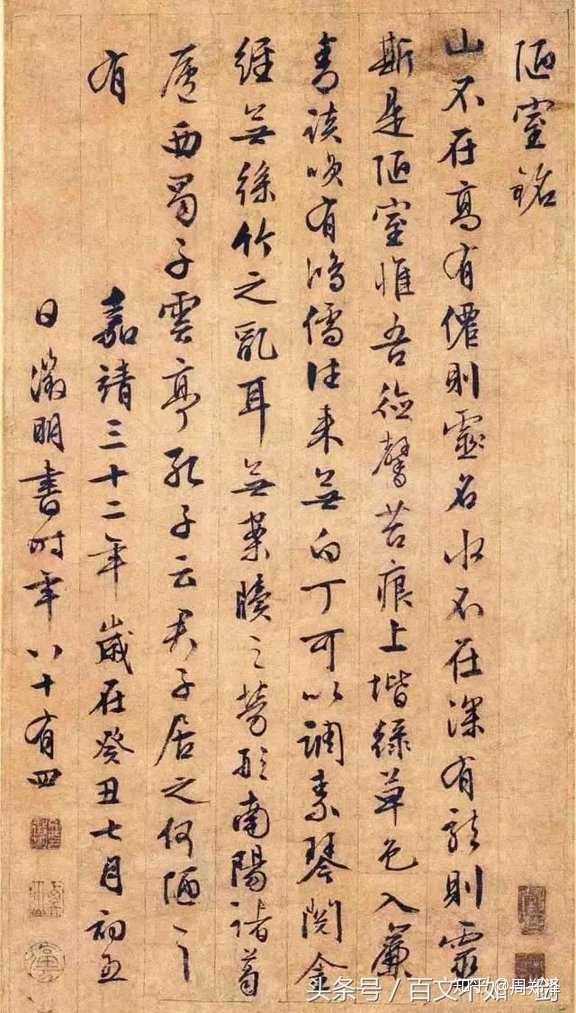 陋室銘
山不在高有僊則靈名水不在深有龍則靈
斯是陋室惟吾德馨苔痕上堦綠草色入簾
青談咲有鴻儒往来無白丁可以調素琴閱金
經無絲竹之亂耳無案牘之勞形南陽諸葛
廬西蜀子雲亭孔子云君子居之何陋之
有
嘉靖三十二年歲在癸丑七月初五
日徵明書時年八十有四
头条号 / 百文不如一
知乎 @周